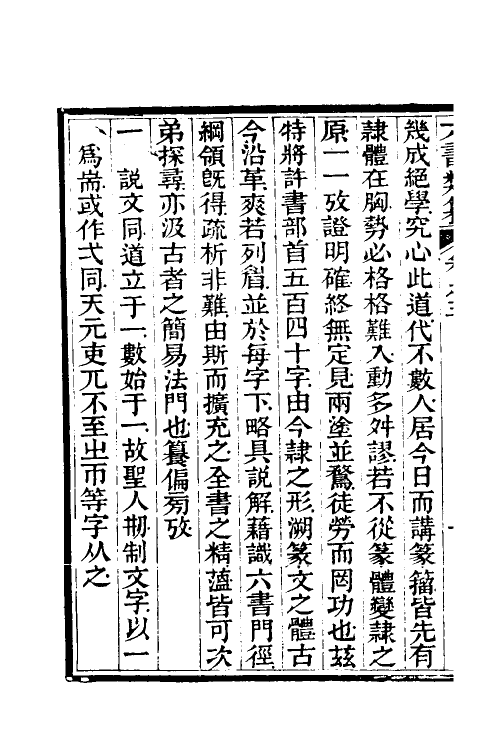 幾成絕學究心此道代不數人居今日而講篆籀皆先有
隸體在胸勢必格格難入動多舛謬若不從篆體變隸之
原一一攷證明確終無定見兩塗並騖徒勞而罔功也茲
特將許書部首五百四十字由今隸之形溯篆文之體古
今沿革爽若列眉並於每字下略具說解藉識六書門徑
綱領旣得疏析非難由斯而擴充之全書之精蘊皆可次
弟探尋亦汲古者之簡易法門也纂偏旁攷
一　說文同道立于一數始于一故聖人刱制文字以一
爲耑或作弌同天元吏兀不至㞢帀等字从之